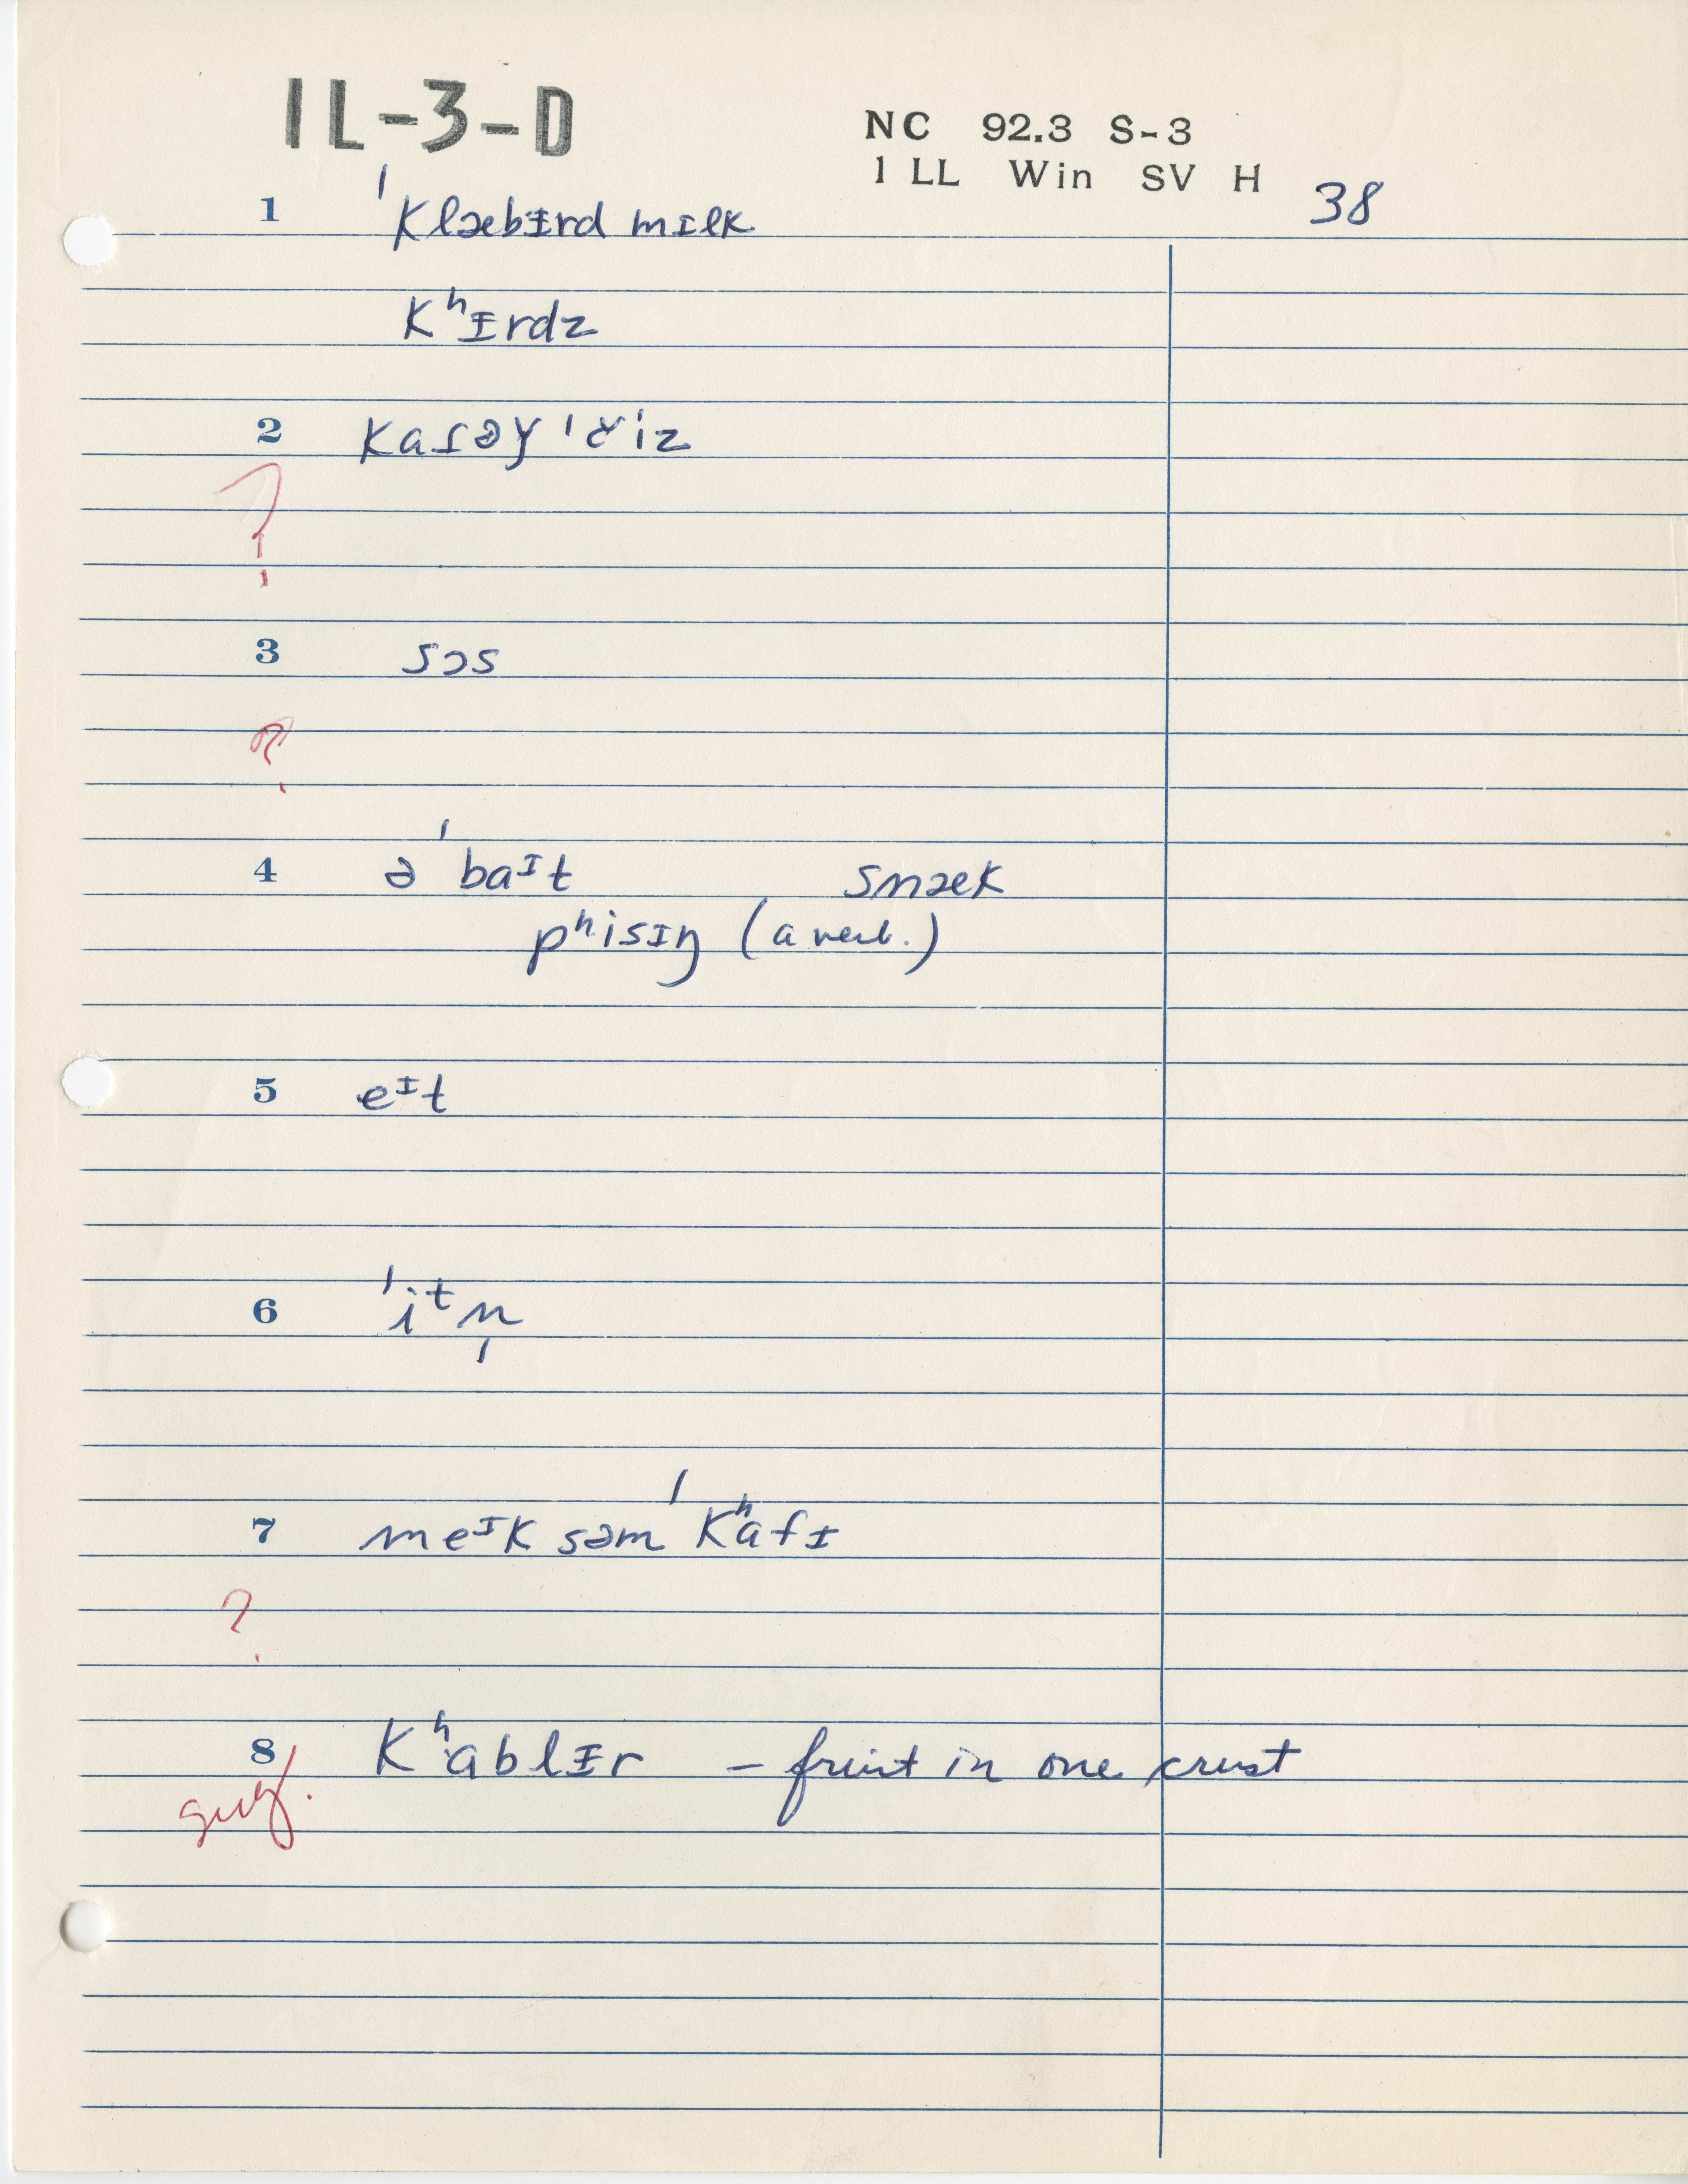 1L-3-D
NC 92.3 S-3
1 LL Win SV H 38
1 ˈklæbɪrd mɪlk
kʰɪrdz
2
?
3 sɔs
?
4 ə ˈbaᴵt snæk
pʰisɪŋ (a verb.)
5 eᴵt
6 ˈiᵗn̩
7 meᴵk səm ˈkʰafɪ
?
8 kʰablɪr – fruit in one crust
sug.